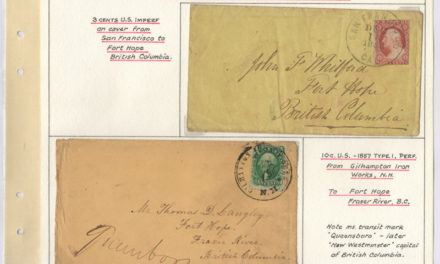 3 CENTS U.S. IMPERF
on cover from
San Francisco to
Fort Hope
British Columbia.
SAN
John F Whitford
Fort Hope
British Columbia
10c. U.S. -1857 TYPE I, PERF.
From Gilhampton Iron
Works, N.H.
To Fort Hope
Fraser River, B.C.
Note ms transit mark
"Queensboro" - later
"New Westminster" capital
of British Columbia.
Mr Thomas D. Langley
Fort Hope.
Frazer River.
British Columbia.